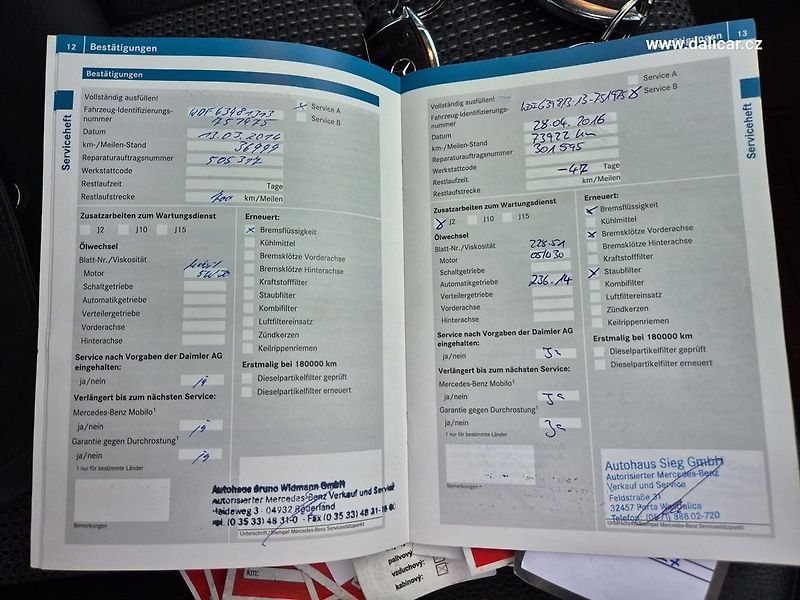 www.dalicar.cz
12 Bestätigungen
Bestätigungen
Serviceheft
Vollständig ausfüllen!
Fahrzeug-Identifizierungs-
nummer
WDF63481313
757975
Service A
Service B
Datum 13.03.2014
km-/Meilen-Stand 36999
Reparaturauftragsnummer 505317
Werkstattcode
Restlaufzeit Tage
Restlaufstrecke 400 km/Meilen
Zusatzarbeiten zum Wartungsdienst
J2 J10 J15
Ölwechsel
Blatt-Nr./Viskosität
Motor 5W30
Schaltgetriebe
Automatikgetriebe
Verteilergetriebe
Vorderachse
Hinterachse
Service nach Vorgaben der Daimler AG
eingehalten:
ja/nein ja
Verlängert bis zum nächsten Service:
Mercedes-Benz Mobilo¹
ja/nein ja
Garantie gegen Durchrostung¹
ja/nein ja
1 nur für bestimmte Länder
Bemerkungen
Erneuert:
Bremsflüssigkeit
Kühlmittel
Bremsklötze Vorderachse
Bremsklötze Hinterachse
Kraftstofffilter
Staubfilter
Kombifilter
Luftfiltereinsatz
Zündkerzen
Keilrippenriemen
Erstmalig bei 180000 km
Dieselpartikelfilter geprüft
Dieselpartikelfilter erneuert
Autohaus Bruno Widmann GmbH
Autorisierter Mercedes-Benz Verkauf und Service
Haideweg 3 · 04932 Röderland
Tel. (0 35 33) 48 31-0 · Fax (0 35 33) 48 31-
Unterschrift/Stempel Mercedes-Benz Servicestützpunkt
13
Serviceheft
Vollständig ausfüllen!
Fahrzeug-Identifizierungs-
nummer
Service A
Service B
Datum 28.04.2016
km-/Meilen-Stand 73922 km
Reparaturauftragsnummer 301595
Werkstattcode
Restlaufzeit -47 Tage
Restlaufstrecke km/Meilen
Zusatzarbeiten zum Wartungsdienst
J2 J10 J15
Ölwechsel
Blatt-Nr./Viskosität 228.51
Motor 05W30
Schaltgetriebe
Automatikgetriebe 236.14
Verteilergetriebe
Vorderachse
Hinterachse
Service nach Vorgaben der Daimler AG
eingehalten:
ja/nein Ja
Verlängert bis zum nächsten Service:
Mercedes-Benz Mobilo¹
ja/nein Ja
Garantie gegen Durchrostung¹
ja/nein Ja
1 nur für bestimmte Länder
Bemerkungen
Erneuert:
Bremsflüssigkeit
Kühlmittel
Bremsklötze Vorderachse
Bremsklötze Hinterachse
Kraftstofffilter
Staubfilter
Kombifilter
Luftfiltereinsatz
Zündkerzen
Keilrippenriemen
Erstmalig bei 180000 km
Dieselpartikelfilter geprüft
Dieselpartikelfilter erneuert
Autohaus Sieg GmbH
Autorisierter Mercedes-Benz
Verkauf und Service
Feldstraße 31
32457 Porta Westfalica
Telefon (0571) 888 02-720
Unterschrift/Stempel Mercedes-Benz Servicestützpunkt
km:
palivový:
vzduchový:
kabinový: